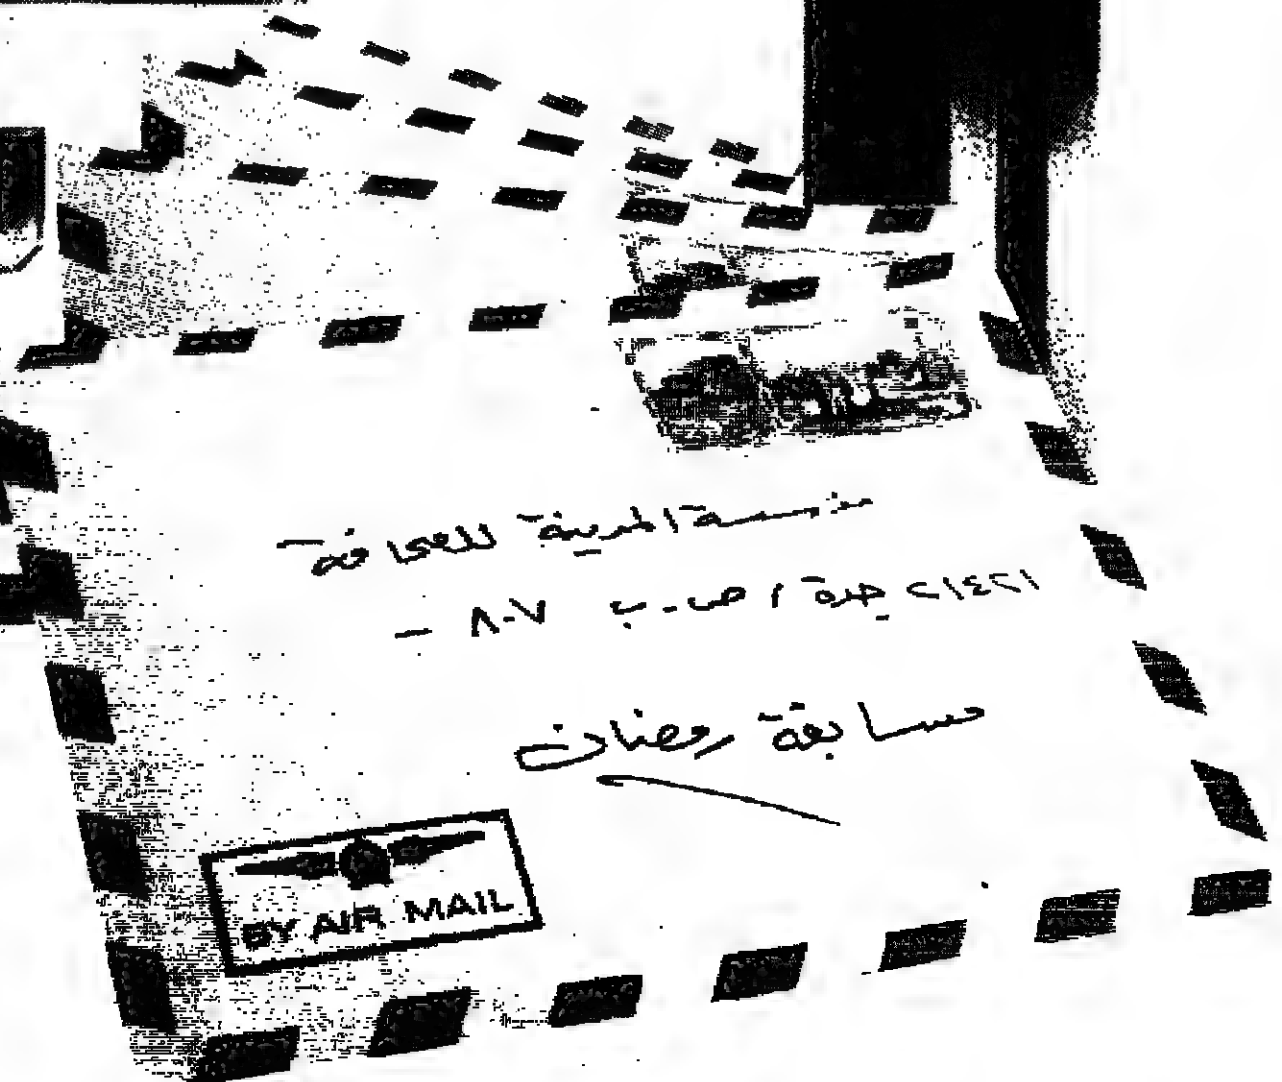 مؤسسة المدينة للصحافة
٢١٤٢١ جدة / ص . ب ٨٠٧ –
مسابقة رمضان
BY AIR MAIL